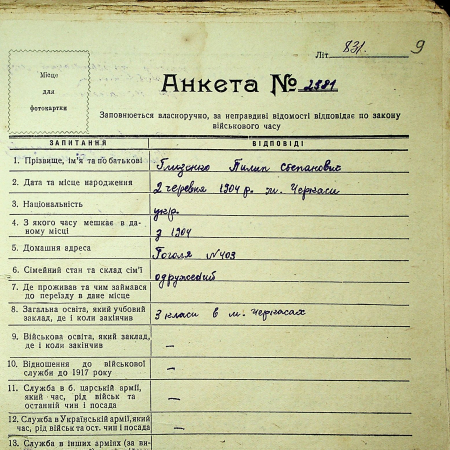 9
Літ. 831.
Місце
для
фотокартки
Анкета № 2981
Заповнюється власноручно, за неправдиві відомості відповідає по закону
військового часу
ЗАПИТАННЯ ВІДПОВІДІ
1. Прізвище, ім'я та по батькові Пилип Степанович
2. Дата та місце народження 2 червня 1904 р. м. Черкаси
3. Національність укр.
4. З якого часу мешкає в да-
ному місці з 1904
5. Домашня адреса Гоголя №403
6. Сімейний стан та склад сім'ї одружений
7. Де проживав та чим займався
до переїзду в дане місце
8. Загальна освіта, який учбовий
заклад, де і коли закінчив 3 класи в м. Черкасах
9. Військова освіта, який заклад,
де і коли закінчив —
10. Відношення до військової
служби до 1917 року —
11. Служба в б. царській армії,
який час, рід військ та
останній чин і посада —
12. Служба в Українській армії, який
час, рід військ та ост. чин і посада —
13. Служба в інших арміях (за ви-